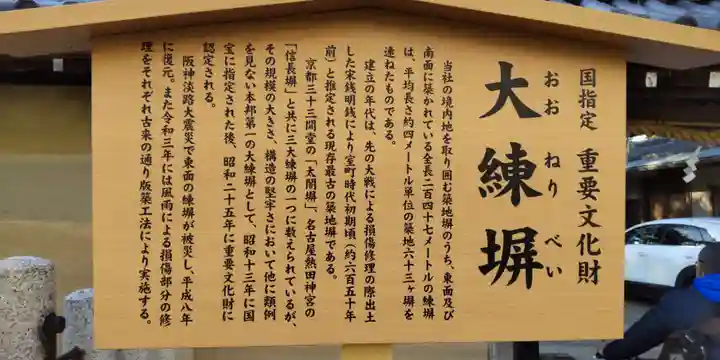 国指定 重要文化財
おお ねり べい
大練塀
当社の境内地を取り囲む築地塀のうち、東面及び
南面に築かれている全長二百四十七メートルの練塀
は、平均長さ約四メートル単位の築地六十三ヶ塀を
連ねたものである。
建立の年代は、先の大戦による損傷修理の際出土
した宋銭明銭により室町時代初期頃(約六百五十年
前)と推定される現存最古の築地塀である。
京都三十三間堂の「太閤塀」、名古屋熱田神宮の
「信長塀」と共に三大練塀の一つに数えられているが、
その規模の大きさ、構造の堅牢さにおいて他に類例
を見ない本邦第一の大練塀として、昭和十三年に国
宝に指定された後、昭和二十五年に重要文化財に
認定される。
阪神淡路大震災で東面の練塀が被災し、平成八年
に復元。また令和三年には風雨による損傷部分の修
理をそれぞれ古来の通り版築工法により実施する。